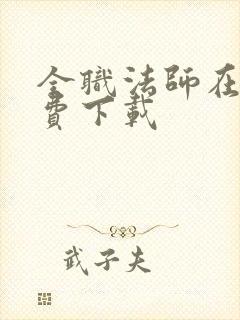 全職法師在
費下載
武子夫